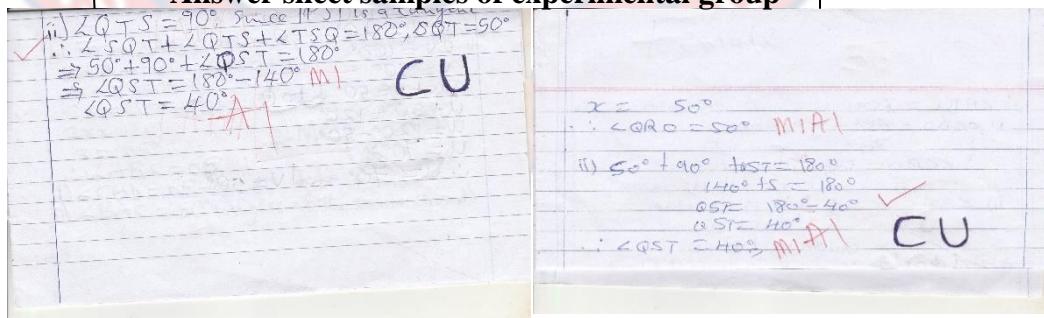 Answer sheet samples of experimental group
ii) ∠QTS = 90°, Since is a tangent
∴ ∠SQT + ∠QTS + ∠TSQ = 180°, SQT = 50°
⇒ 50° + 90° + ∠QST = 180°
⇒ ∠QST = 180° - 140° M1
∠QST = 40° A1
CU
x = 50°
∴ ∠QRO = 50° M1A1
ii) 50° + 90° + QST = 180°
140° + S = 180°
QST = 180° - 40°
QST = 40°
∴ ∠QST = 40° M1A1
CU